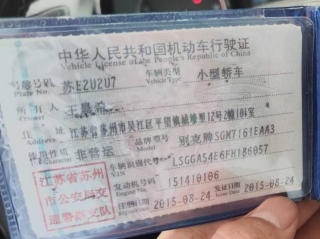 中华人民共和国机动车行驶证
Vehicle License of the People's Republic of China
号牌号码 苏E2U2U7 车辆类型 小型轿车
Plate No. Vehicle Type
所有人 王
住址 江苏省苏州市吴江区平望镇 12号2幢104室
使用性质 非营运 品牌型号 别克牌SGM7161EAA3
江苏省苏州 车辆识别代号 LSGGA54E6FH186057
市公安局交 发动机号码 151410106
通警察支队 注册日期 2015-08-24 发证日期 2015-08-24